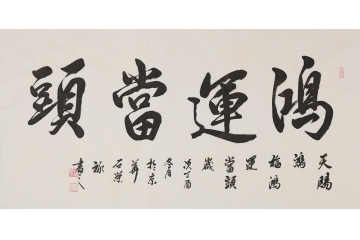 鴻運當頭
天賜
鴻
福鴻
運
當頭
歲
次丁酉
冬月
於京
華
石榮
禄
書之